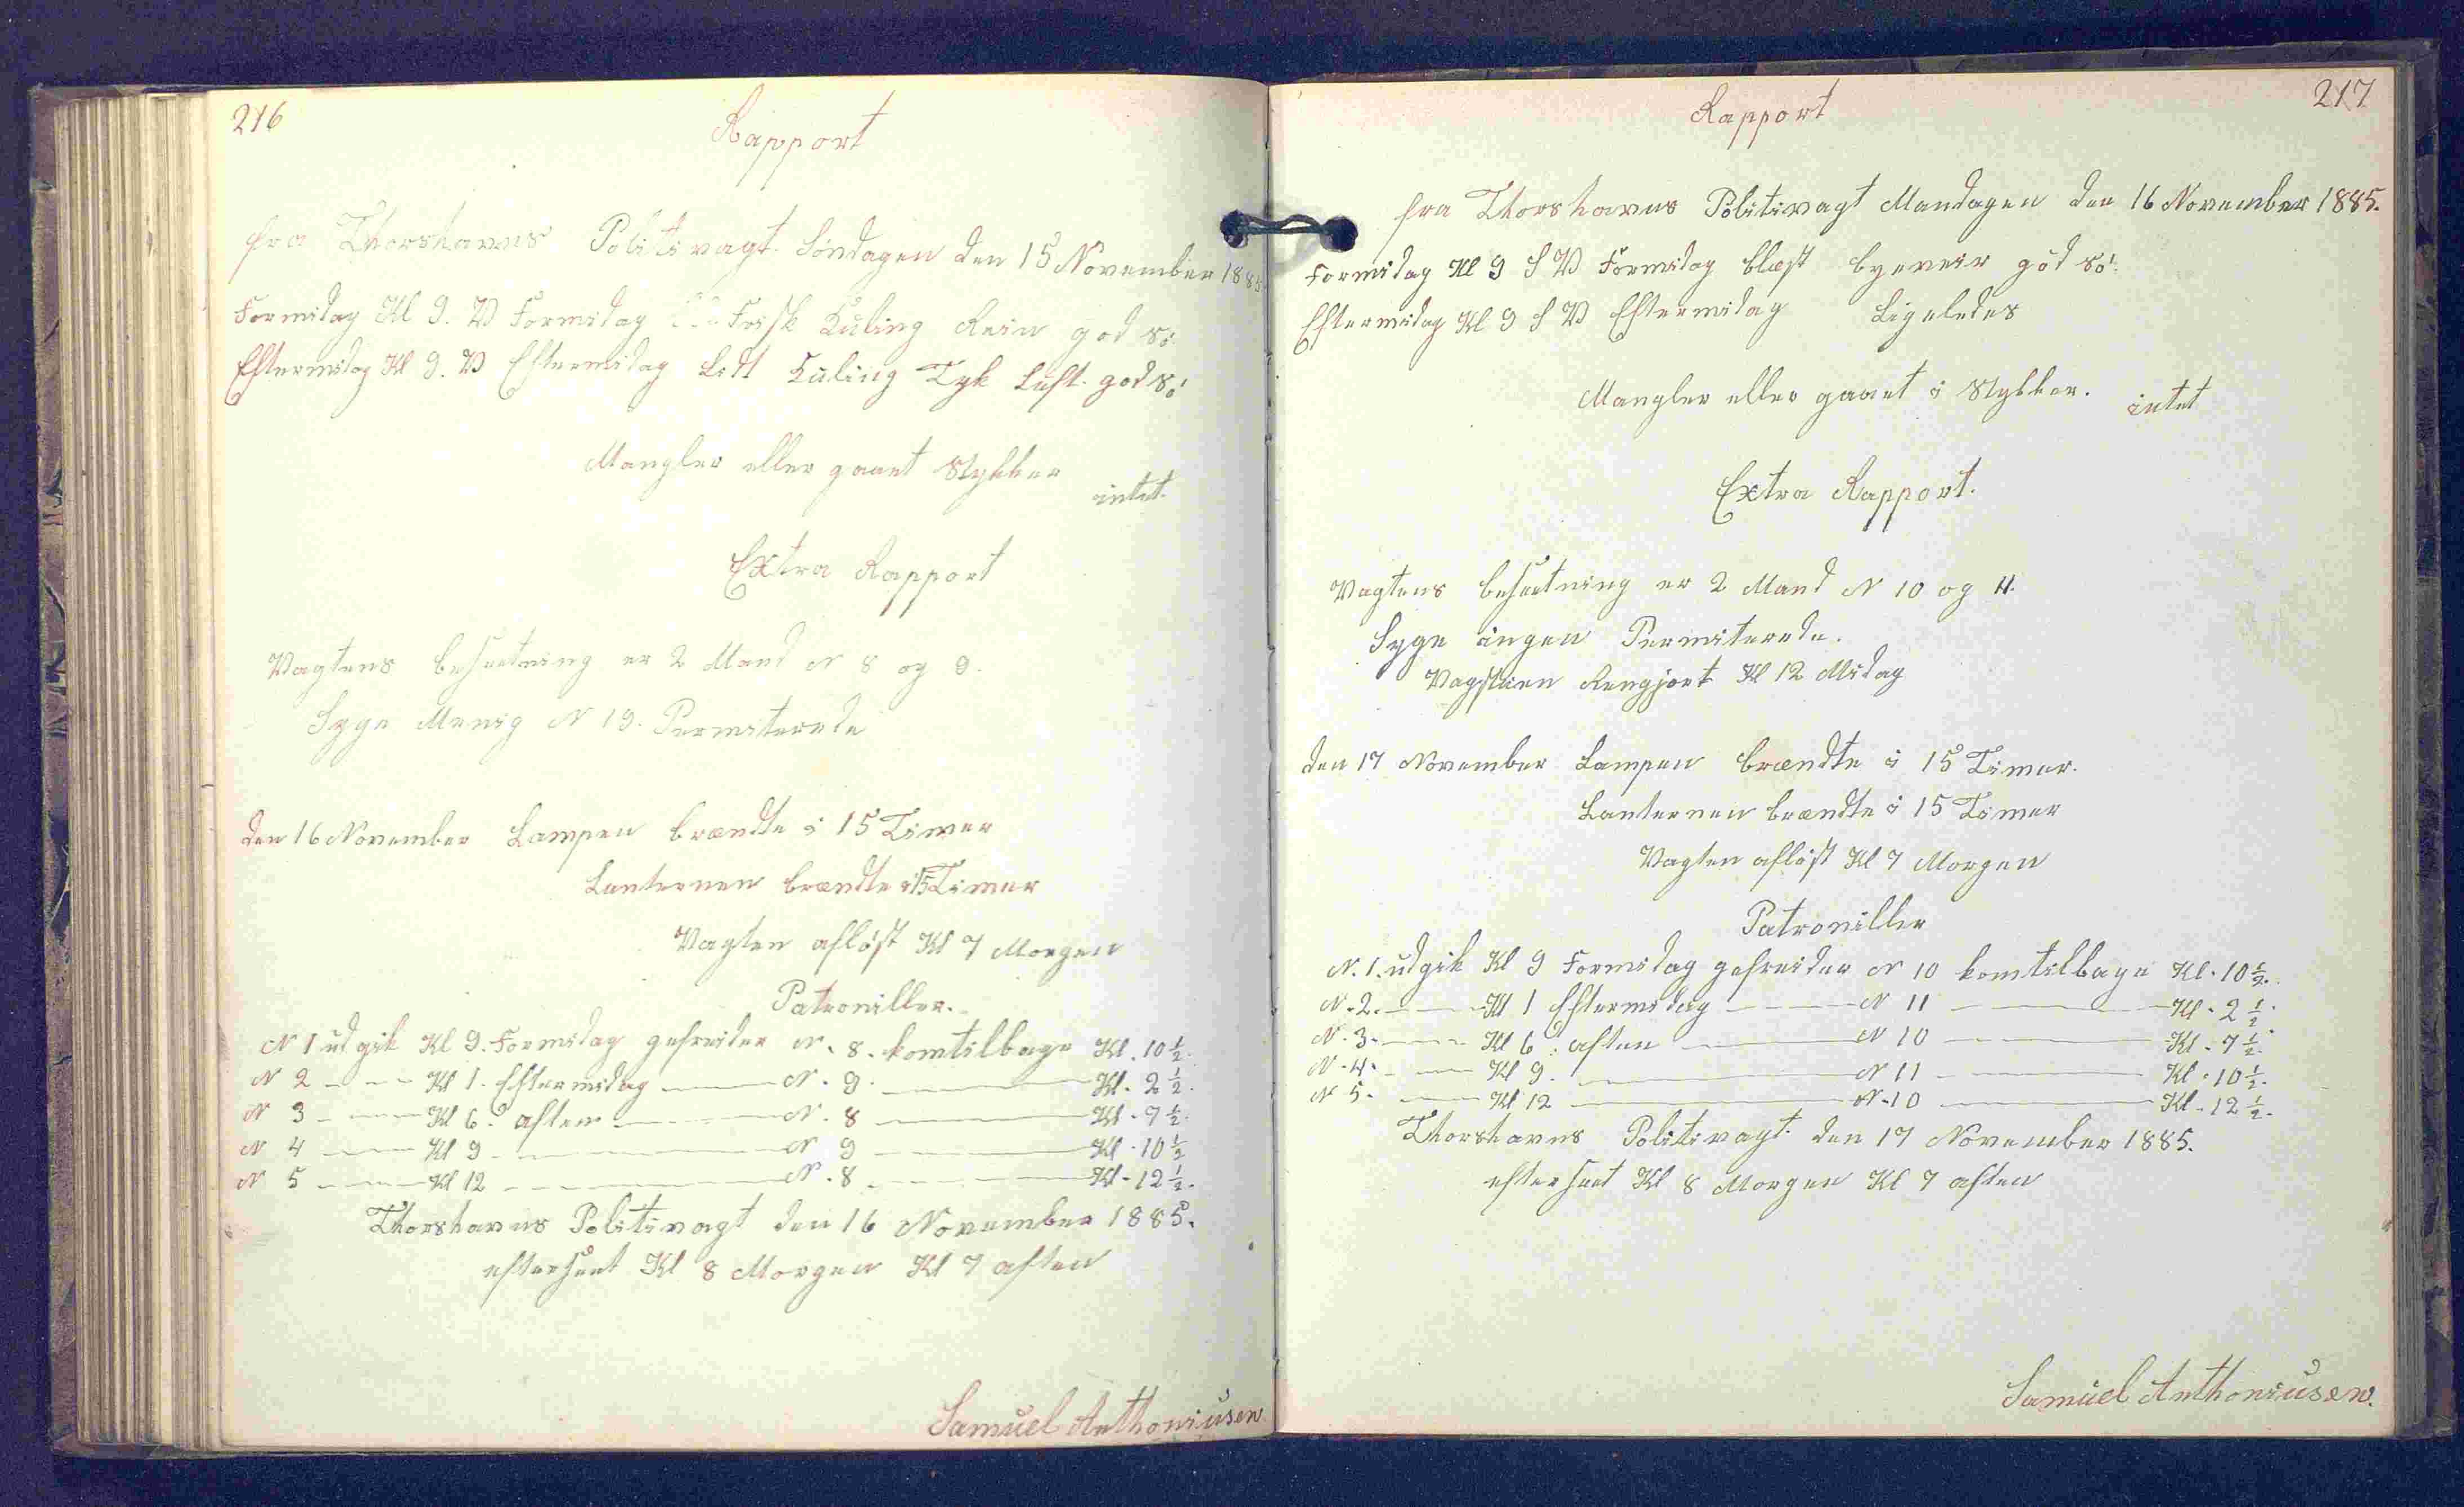 216
Rapport
fra Thorshavns Politivagt Søndagen den 15 November 1885
Formidag Kl 9. V Formidag Frisk Kuling Rein god Sö
Eftermidag Kl 9. V Eftermidag Lidt Kuling Tyk Luft. god Sö
Mangler eller gaaet Stykker intet.
Extra Rapport
Vagtens besætning er 2 Mand N 8 og 9.
Syge Menig N 19. Permiterede
den 16 November Lampen brændte i 15 Timer
Lanternen brændte i 15 Timer
Vagten afløst Kl 7 Morgen
Patroniller.
N 1 udgik Kl 9. Formidag gefreider N. 8. komtilbage Kl. 10 1/2.
N 2 — Kl 1. Eftermidag — N. 9. — Kl. 2 1/2.
N 3 — Kl 6. aften — N. 8 — Kl. 7 1/2.
N 4 — Kl 9 — N 9 — Kl. 10 1/2
N 5 — Kl 12 — N. 8 — Kl. 12 1/2.
Thorshavns Politivagt den 16 November 1885.
efterseet Kl 8 Morgen Kl 7 aften
Samuel Anthoniusen
217
Rapport
fra Thorshavns Politivagt Mandagen den 16 November 1885.
Formidag Kl 9 S V Formidag blæst byeveir göd Sö.
Eftermidag Kl 9 S V Eftermidag Ligeledes
Mangler eller gaaet i Stykker. intet
Extra Rapport.
Vagtens besætning er 2 Mand N 10 og 11.
Syge ingen Permiterede.
Vagstuen Rengjort Kl 12 Midag
den 17 November Lampen brændte i 15 Timer.
Lanternen brændte i 15 Timer
Vagten afløst Kl 7 Morgen
Patroniller
N. 1. udgik Kl 9 Formidag gefreider N 10 komtilbage Kl. 10 1/2.
N. 2. — Kl 1 Eftermidag — N 11 — Kl. 2 1/2.
N. 3. — Kl 6. aften — N 10 — Kl. 7 1/2.
N. 4. — Kl 9. — N 11 — Kl. 10 1/2.
N 5. — Kl 12 — N. 10 — Kl. 12 1/2.
Thorshavns Politivagt. den 17 November 1885.
efterseet Kl 8 Morgen Kl 7 aften
Samuel Anthoniusen.